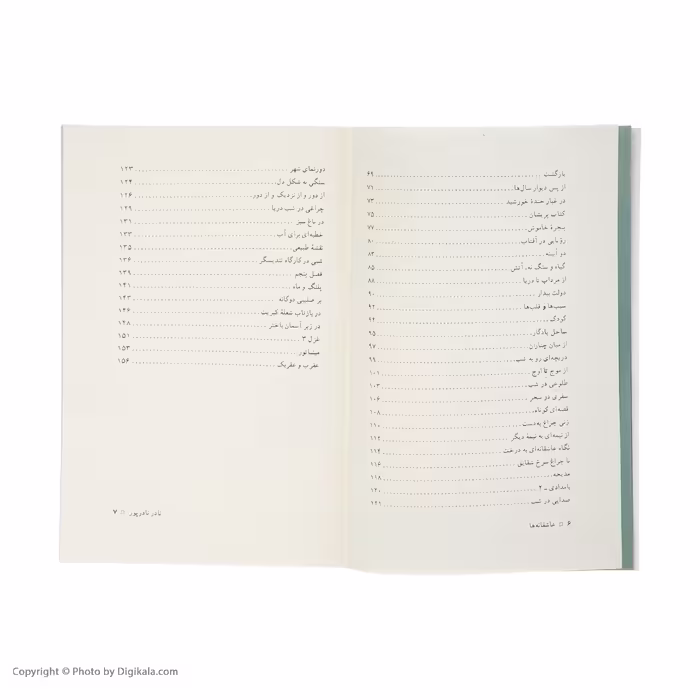 بازگشت ۶۹
از پس دیوار سال‌ها ۷۱
در غبار خندهٔ خورشید ۷۳
کتاب پریشان ۷۵
پنجرهٔ خاموش ۷۷
رؤیایی در آفتاب ۸۰
دو آیینه ۸۳
گیاه و سنگ نه، آتش ۸۵
از مرداب تا دریا ۸۸
دولت بیدار ۹۰
سیب‌ها و قلب‌ها ۹۲
کودک ۹۴
ساحل یادگار ۹۵
از میان چناران ۹۷
دریچه‌ای رو به شب ۹۹
از موج تا اوج ۱۰۱
طلوعی در شب ۱۰۳
سفری دو سحر ۱۰۶
قصه‌ای کوتاه ۱۰۸
زنی چراغ به‌دست ۱۱۰
از نیمه‌ای به نیمهٔ دیگر ۱۱۲
نگاه عاشقانه‌ای به درخت ۱۱۴
با چراغ سرخ شقایق ۱۱۶
مدیحه ۱۱۸
بامدادی - ۲ ۱۲۰
صدایی در شب ۱۲۱
۶ □ عاشقانه‌ها
دورنمای شهر ۱۲۳
سنگی به شکل دل ۱۲۴
از دور و از نزدیک و از دور ۱۲۶
چراغی در شب دریا ۱۲۹
در باغ سبز ۱۳۱
خطبه‌ای برای آب ۱۳۳
نقشهٔ طبیعی ۱۳۵
شبی در کارگاه تندیسگر ۱۳۶
فصل پنجم ۱۳۹
پلنگ و ماه ۱۴۱
بر صلیبی دوگانه ۱۴۳
در بازتاب شعلهٔ کبریت ۱۴۶
در زیر آسمان باختر ۱۴۸
غزل ۳ ۱۵۱
مینیاتور ۱۵۳
عقرب و عقربک ۱۵۶
نادر نادرپور □ ۷
Copyright © Photo by Digikala.com